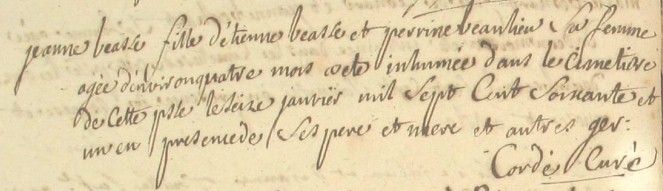 jeanne beasse fille d'étienne beasse et perrine beaulieu sa femme
agée d'environ quatre mois a ete inhumée dans le Cimetiere
de Cette psse le seize janvier mil sept Cent soixante et
un en presence de ses pere et mere et autres
Cordé Curé